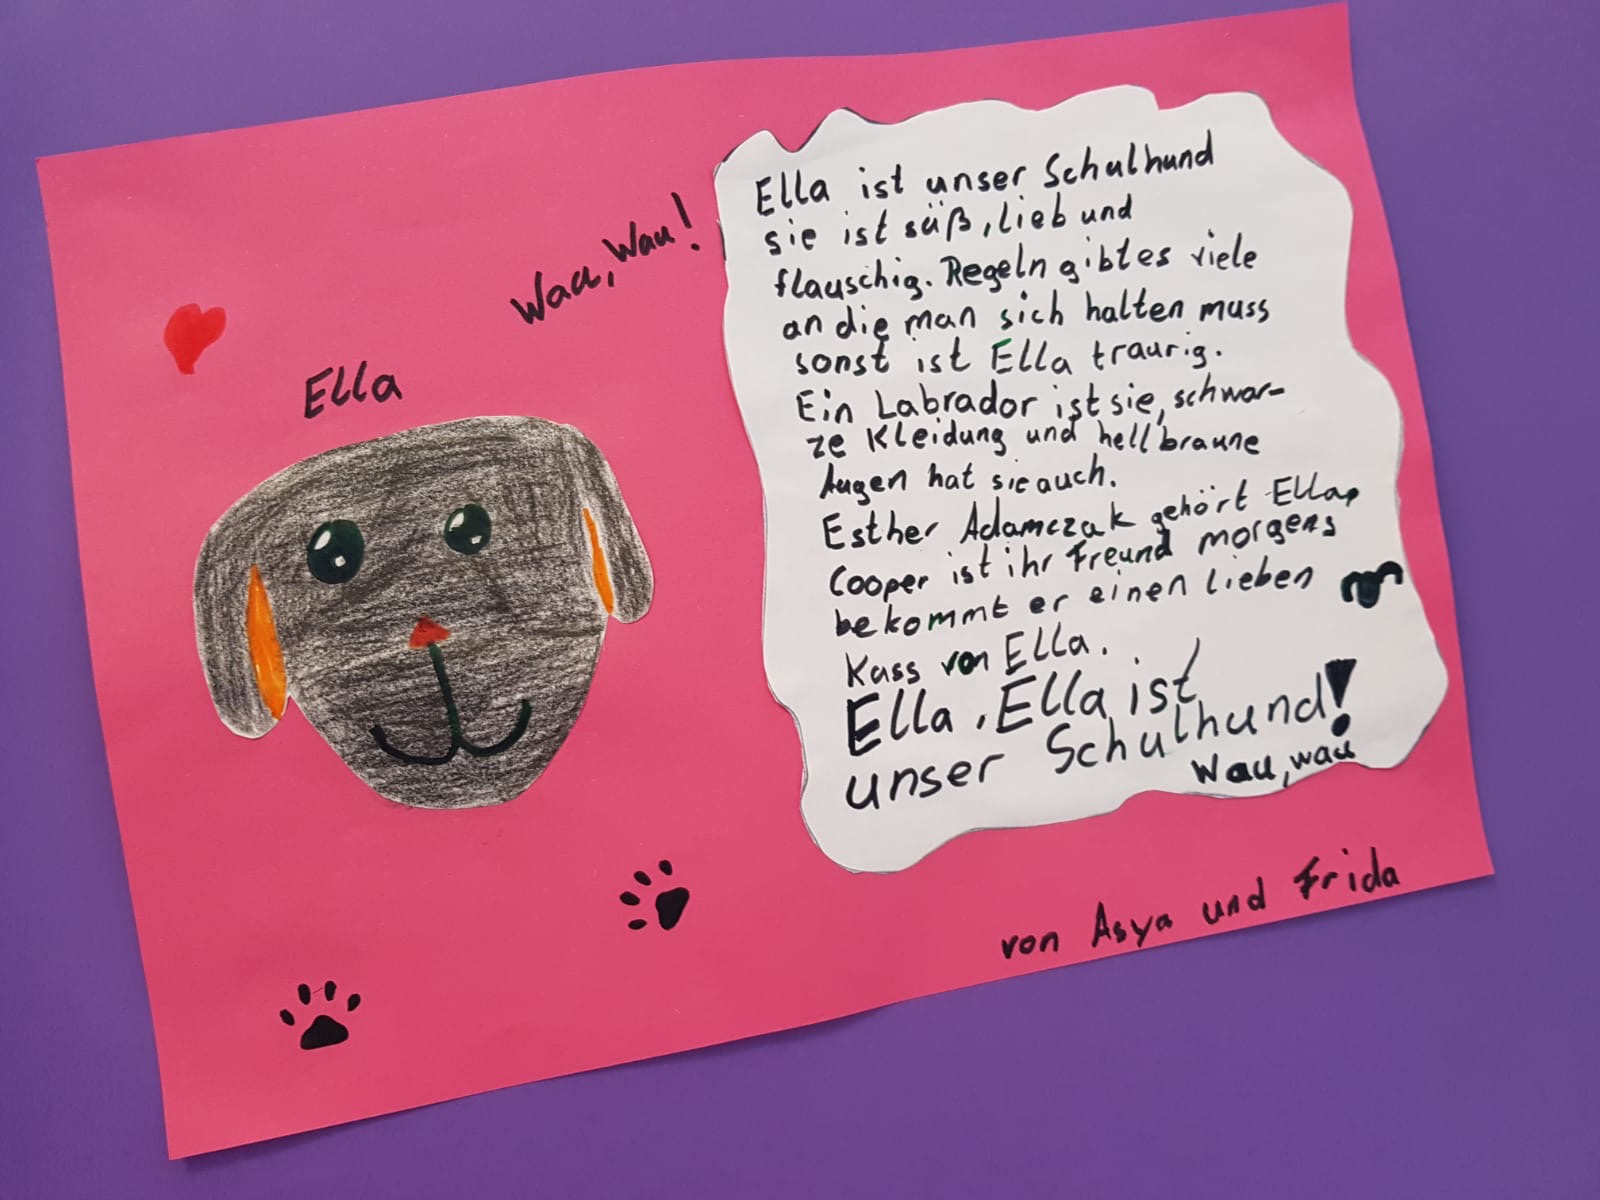 Wau, Wau!
Ella
Ella ist unser Schulhund
sie ist süß, lieb und
flauschig. Regeln gibt es viele
an die man sich halten muss
sonst ist Ella traurig.
Ein Labrador ist sie, schwar-
ze Kleidung und hellbraune
Augen hat sie auch.
Esther Adamczak gehört Ella,
Cooper ist ihr Freund morgens
bekommt er einen lieben
Kuss von Ella.
Ella, Ella ist
unser Schulhund!
Wau, wau
von Asya und Frida